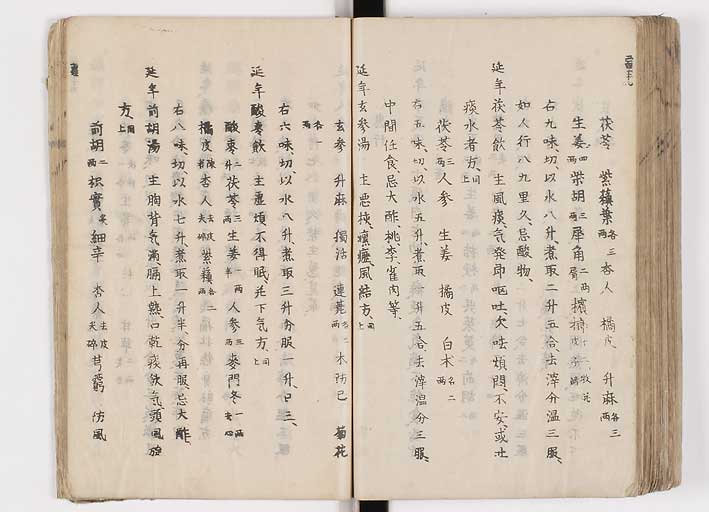 茯苓 紫蘓葉各三両 杏人 橘皮 升麻各三両
生姜四両 柴胡三両 犀角二両
右九味、切、以水八升、煮取二升五合、去滓、分温三服、
如人行八九里久、忌酸物、
延年茯苓飲 主風痰気発即嘔吐、欠呿、煩悶、不安、或吐
痰水者方、上同
茯苓三両 人参 生姜 橘皮 白朮各二両
右五味、切、以水五升、煮取 升五合、去滓、温分三服、
中間任食、忌大酢、桃李、雀肉等、
延年玄参湯 主悪 風結方、上同
玄参 升麻 獨活 連 各二両 木防己 菊花
各一両
右六味、切、以水八升、煮取三升、分服一升、日三、
延年酸棗飲 主虚煩不得眠、并下気方、上同
酸棗二升 茯苓三両 生姜一両半 人参三両 麥門冬一両去心
橘皮陳者 杏人去皮尖碎 紫蘓各二両
右八味、切、以水七升、煮取一升半、分再服、忌大酢、
延年前胡湯 主胸背気満、膈上熱、口乾、痰飲気、頭風旋
方、上同
前胡二両 枳實炙 細辛 杏人去皮尖碎 芎藭 防風